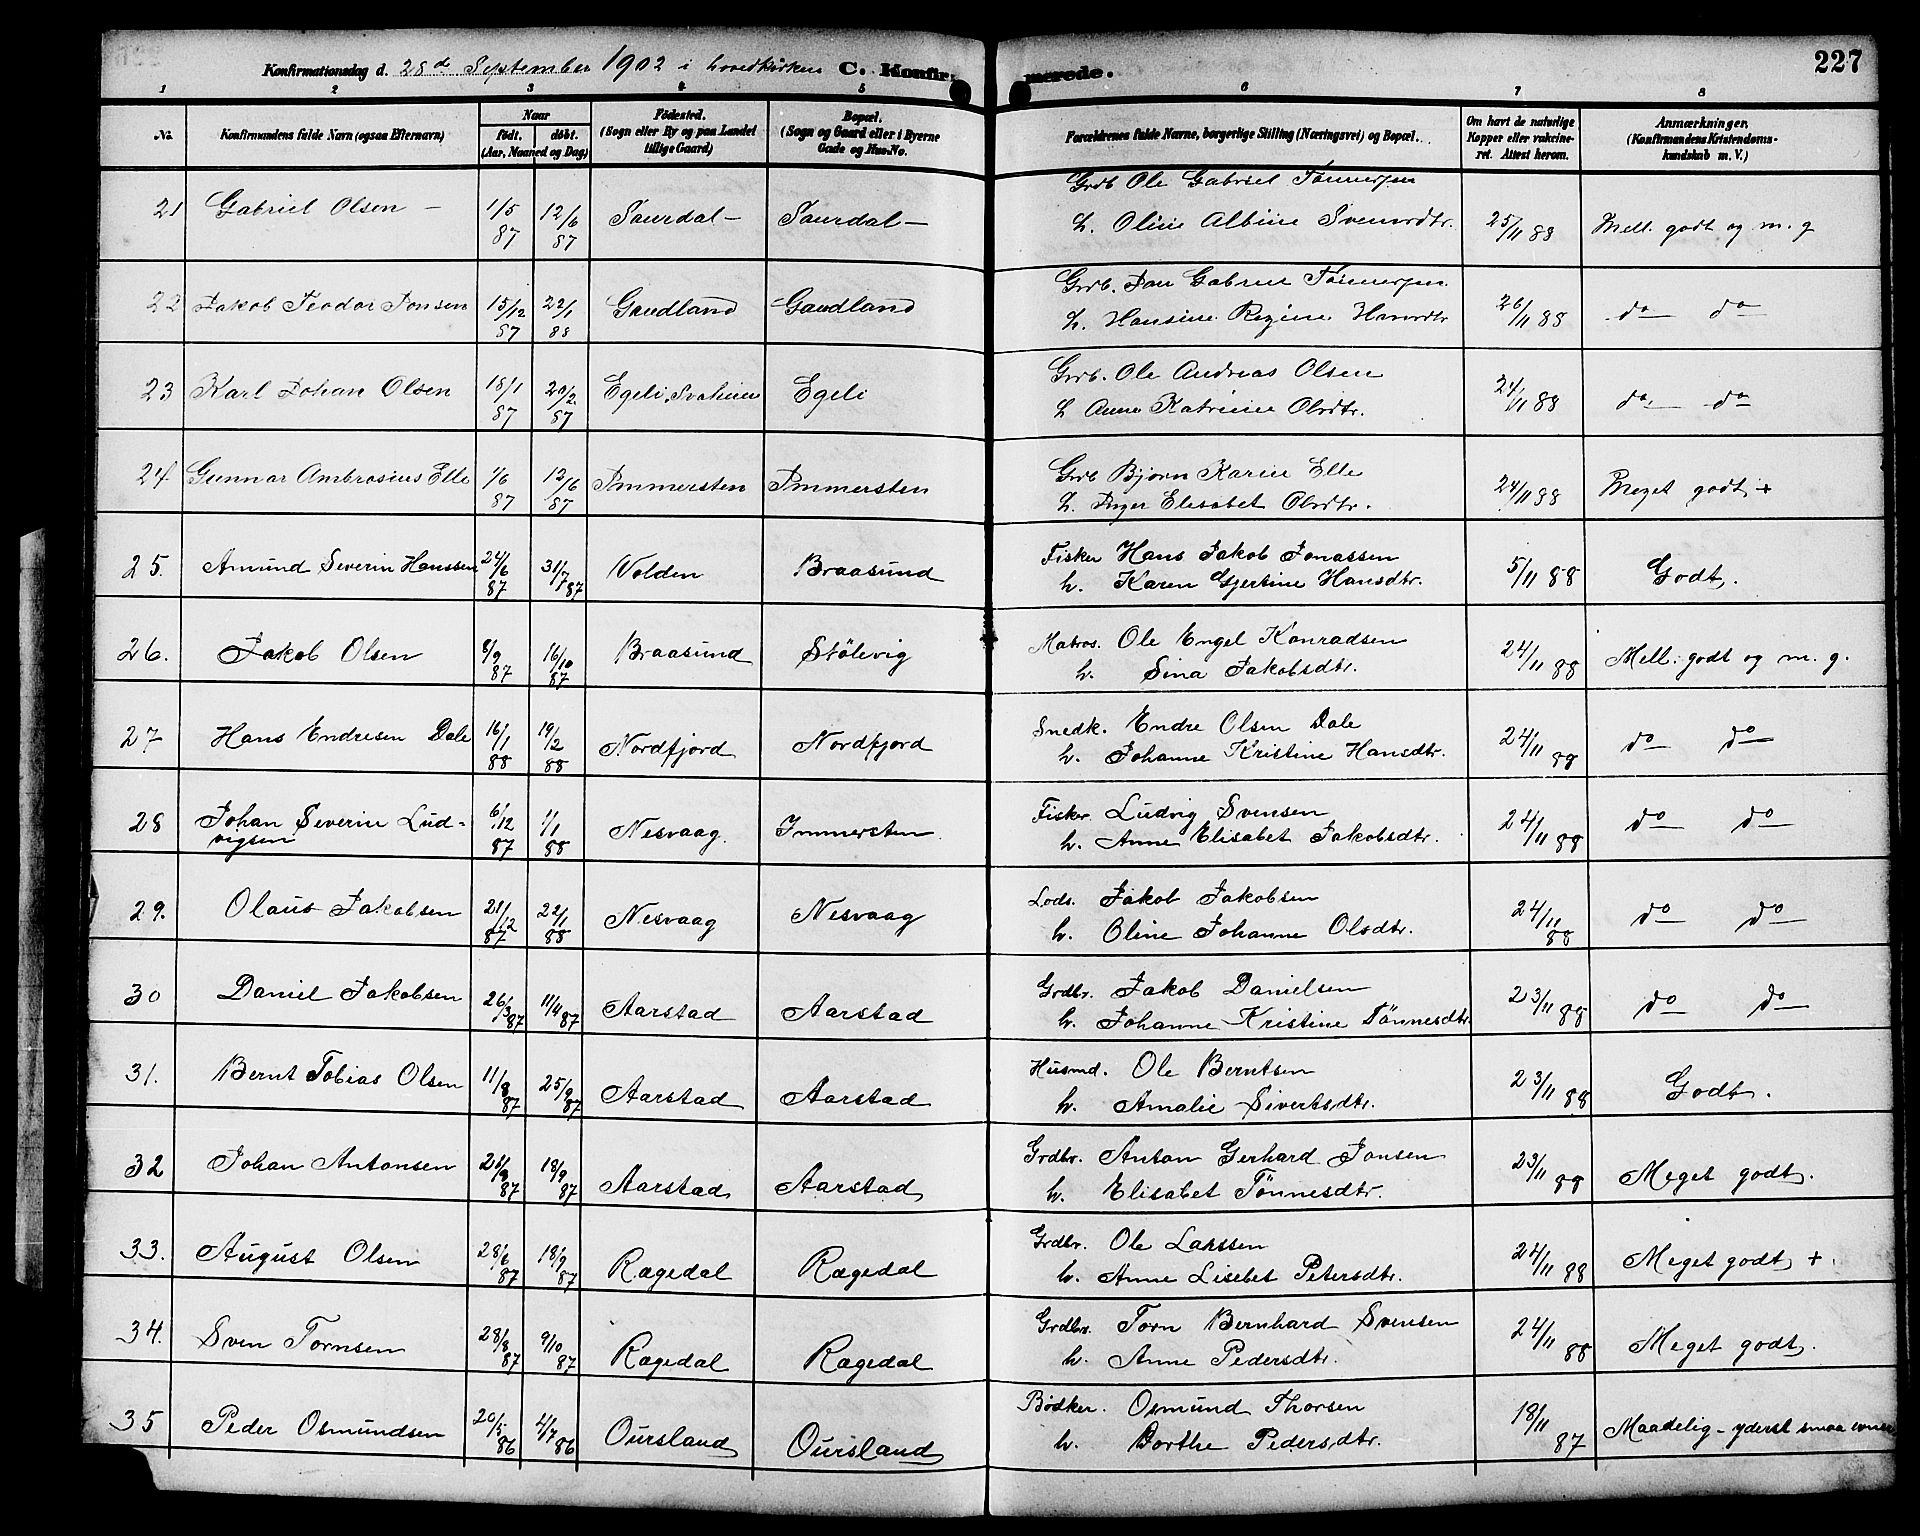 227
Konfirmationsdag d. 28d September 1902 i hovedkirken C. Konfirmerede.
1 2 3 4 5 6 7 8
No. Konfirmandens fulde Navn (ogsaa Efternavn) Naar født. døbt. (Aar, Maaned og Dag) Fødested. (Sogn eller By og paa Landet tillige Gaard) Bopæl. (Sogn og Gaard eller i Byerne Gade og Hus-No. Forældrenes fulde Navne, borgerlige Stilling (Næringsvei) og Bopæl. Om havt de naturlige Kopper eller vakcineret. Attest herom. Anmærkninger, (Konfirmandens Kristendomskundskab m. V.)
21 Gabriel Olsen – 1/5 87 12/6 87 Saurdal – Saurdal – Grdb Ole Gabriel Tønnesen
h. Oline Albine Svensdtr. 25/11 88 Mell. godt og m. g
22 Jakob Teodor Jonsen 15/12 87 22/1 88 Gaudland Gaudland Grdb. Jon Gabriel Tønnesen
h. Hansine Regine 26/11 88 do do
23 Karl Johan Olsen 18/1 87 20/2 87 Egeli, Svaheia Egeli Grdb. Ole Andreas Olsen
h Anne Katrine Olsdtr. 24/11 88 do do
24 Gunnar Ambrosius Elle 1/6 87 12/6 87 Immersten Immersten Grdb Bjørn Karin Elle
h. Inger Elisabet Olsdtr. 24/11 88 Meget godt +
25. Amund Severin Hanssen 24/6 87 31/7 87 Volden Braasund Fisker Hans Jakob Jonassen
h. Karen Gjertine Hansdtr. 5/11 88 Godt.
26. Jakob Olsen 8/9 87 16/10 87 Braasund Stølevig Matros. Ole Engel Konradsen
h. Sina Jakobsdtr. 24/11 88 Mell: godt og m. g.
27 Hans Endresen Dale 16/1 88 19/2 88 Nordfjord Nordfjord Snedk. Endre Olsen Dale
h. Johanne Kristine Hansdtr. 24/11 88 do do
28 Johan Severin Lud-
vigsen 6/12 87 1/1 88 Nesvaag. Immersten Fisker. Ludvig Svensen
h. Anne Elisabet Jakobsdtr. 24/11 88 do do
29. Olaus Jakobsen 21/12 87 22/1 88 Nesvaag Nesvaag Lods. Jakob Jakobsen
h. Oline Johanne Olsdtr. 24/11 88 do do
30 Daniel Jakobsen 26/3 87 11/4 87 Aarstad Aarstad Grdbr. Jakob Danielsen
h. Johanne Kristine Tønnesdtr 23/11 88 do do
31. Bernt Tobias Olsen 11/8 87 25/9 87 Aarstad Aarstad Husmd. Ole Berntsen
h. Amalie Sivertsdtr. 23/11 88 Godt.
32 Johan Antonsen 87 18/9 87 Aarstad Aarstad Grdbr. Anton Gerhard Jonsen
h. Elisabet Tønnesdtr. 23/11 88 Meget godt.
33. August Olsen 28/6 87 18/9 87 Rægedal Rægedal Grdbr. Ole Larssen
h. Anne Lisebet Petersdtr. 24/11 88 Meget godt +.
34. Sven Tornsen 28/8 87 9/10 87 Rægedal Rægedal Grdbr. Torn Bernhard Svensen
h. Anne Pedersdtr. 24/11 88 Meget godt.
35 Peder Osmundsen 20/5 86 4/7 86 Oursland Oursland Bødker. Osmund Thorsen
h. Dorthe Pedersdtr. 18/11 87 Maadelig – yderst smaa evner